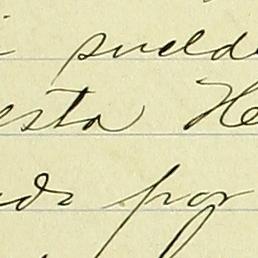 sueld
esta He
do por